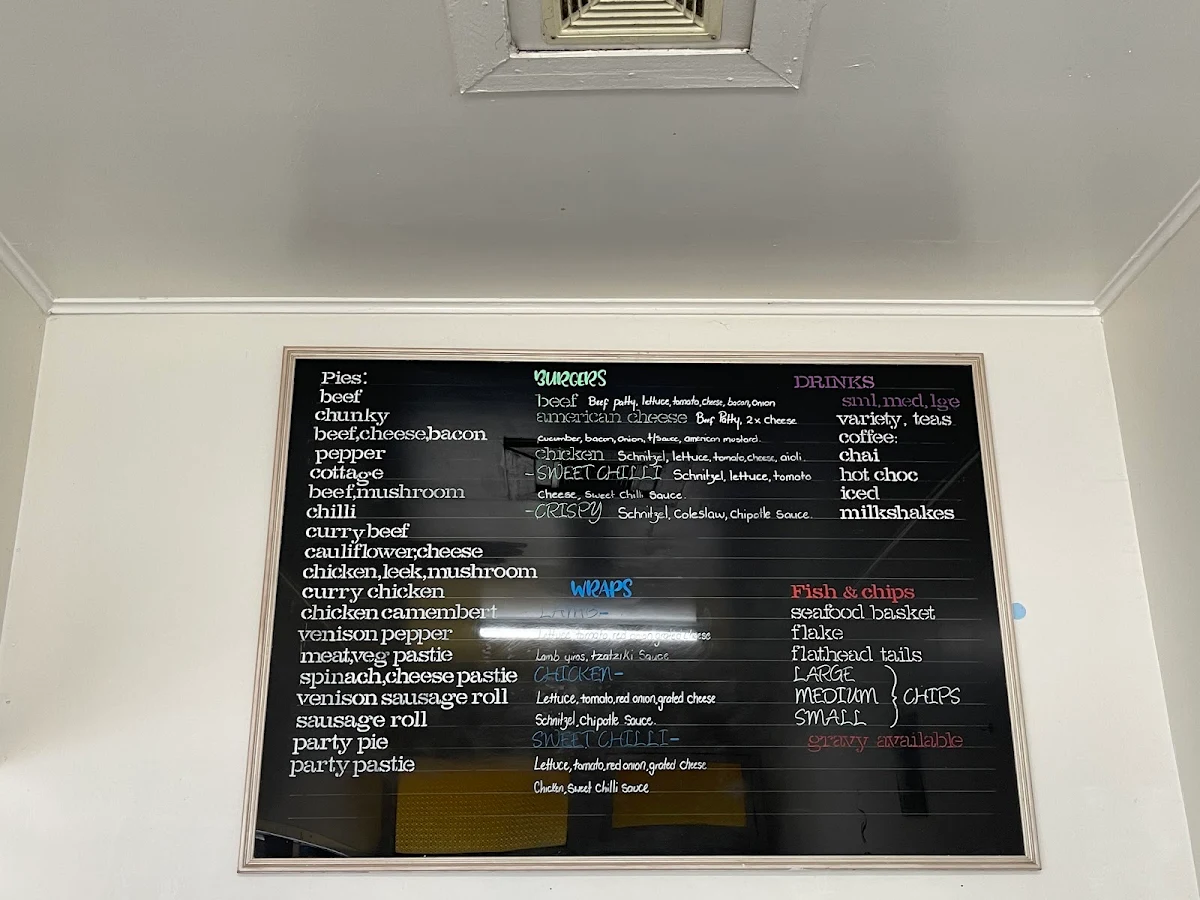 Pies:
beef
chunky
beef,cheese,bacon
pepper
cottage
beef,mushroom
chilli
curry beef
cauliflower,cheese
chicken,leek,mushroom
curry chicken
chicken camembert
venison pepper
meat,veg pastie
spinach,cheese pastie
venison sausage roll
sausage roll
party pie
party pastie
BURGERS
beef Beef patty, lettuce, tomato, cheese, bacon, onion
american cheese Beef Patty, 2x Cheese
cucumber, bacon, onion, t/sauce, american mustard.
chicken Schnitzel, lettuce, tomato, cheese, aioli.
-SWEET CHILLI Schnitzel, lettuce, tomato
Cheese, Sweet Chilli Sauce.
-CRISPY Schnitzel, Coleslaw, Chipotle Sauce.
WRAPS
LAMB-
Lettuce, tomato, red onion, grated cheese
Lamb yiros, tzatziki Sauce
CHICKEN-
Lettuce, tomato, red onion, grated cheese
Schnitzel, Chipotle Sauce.
SWEET CHILLI-
Lettuce, tomato, red onion, grated cheese
Chicken, Sweet Chilli Sauce
DRINKS
sml, med, lge
variety, teas
coffee:
chai
hot choc
iced
milkshakes
Fish & chips
seafood basket
flake
flathead tails
LARGE
MEDIUM } CHIPS
SMALL
gravy available